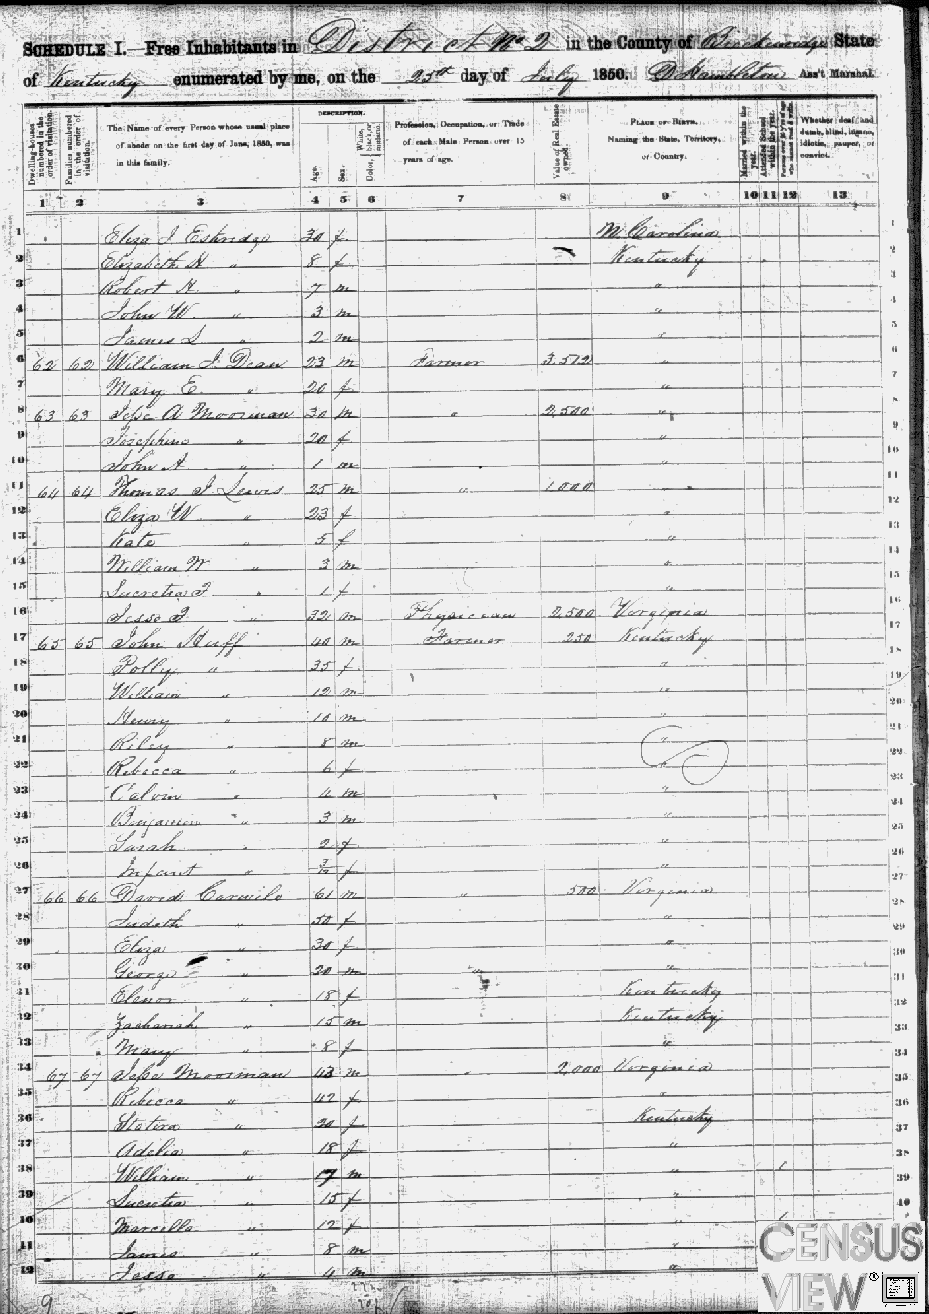 SCHEDULE I.—Free Inhabitants in District No 2 in the County of Breckenridge State
of Kentucky enumerated by me, on the 25th day of July 1850. D. Hambleton Ass't Marshal.
Dwelling-houses numbered in the order of visitation.
Families numbered in the order of visitation.
The Name of every Person whose usual place of abode on the first day of June, 1850, was in this family.
DESCRIPTION.
Age.
Sex.
Color, White, black, or mulatto.
Profession, Occupation, or Trade of each Male Person over 15 years of age.
Value of Real Estate owned.
PLACE OF BIRTH. Naming the State, Territory, or Country.
Married within the year.
Attended School within the year.
Persons over 20 y'rs of age who cannot read & write.
Whether deaf and dumb, blind, insane, idiotic, pauper, or convict.
1 2 3 4 5 6 7 8 9 10 11 12 13
1 Eliza J Eskridge 30 f N. Carolina 1
2 Elizabeth H " 8 f Kentucky 2
3 Robert H. " 7 m " 3
4 John W. " 3 m " 4
5 James S " 2 m " 5
6 62 62 William J. Dean 23 m Farmer 3.512 " 6
7 Mary E " 20 f " 7
8 63 63 Jesse A Moorman 30 m " 2,500 " 8
9 Josephine " 20 f " 9
10 John A " 1 m " 10
11 64 64 Thomas J Lewis 25 m " 1000 " 11
12 Eliza W. " 23 f " 12
13 Kate " 5 f " 13
14 William W " 3 m " 14
15 Lucretia F. " 1 f " 15
16 Jesse F. " 32 m Physician 2,500 Virginia 16
17 65 65 John Huff 40 m Farmer 250 Kentucky 17
18 Polly " 35 f " 18
19 William " 12 m " 19
20 Henry " 10 m " 20
21 Riley " 8 m " 21
22 Rebecca " 6 f " 22
23 Calvin " 4 m " 23
24 Benjamin " 3 m " 24
25 Sarah " 2 f " 25
26 Infant " f " 26
27 66 66 David Carwile 61 m " 500 Virginia 27
28 Judeth " 50 f " 28
29 Eliza " 30 f " 29
30 George " 20 m " " 30
31 Elenor " 18 f Kentucky 31
32 Zachariah " 15 m Kentucky 32
33 Mary " 8 f " 33
34 67 67 Jesse Moorman 43 m " 2,000 Virginia 34
35 Rebecca " 42 f " 35
36 Statira " 20 f Kentucky 36
37 Adelia " 18 f " 37
38 William " 17 m " 1 38
39 Lucretia " 15 f " 39
40 Marcella " 12 f " 1 40
41 James " 8 m "
42 Jesse " 4 m "
9
CENSUS VIEW®